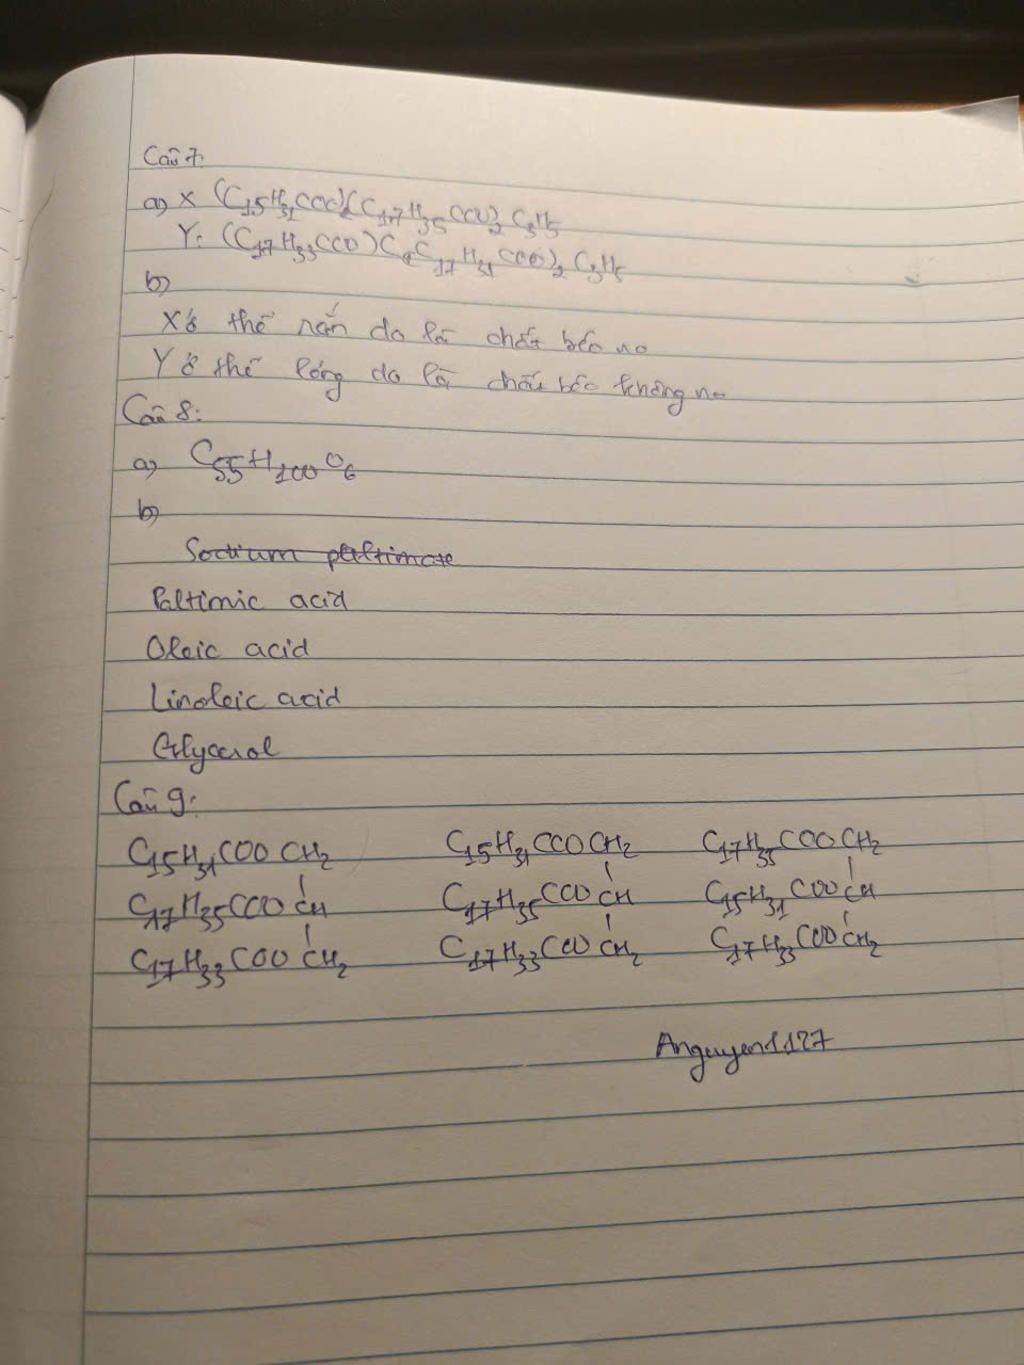 Câu 7:
a) X (C15H31COO)(C17H35COO)2C3H5
Y: (C17H33COO)(C17H31COO)2C3H5
b)
X ở thể rắn do là chất béo no
Y ở thể lỏng do là chất béo không no
Câu 8:
a) C55H100O6
b)
Sodium paltimate
Paltimic acid
Oleic acid
Linoleic acid
Glycerol
Câu 9:
C15H31COOCH2 C15H31COOCH2 C17H35COOCH2
C17H35COOCH C17H35COOCH C15H31COOCH
C17H33COOCH2 C17H33COOCH2 C17H33COOCH2
Anguyen1127